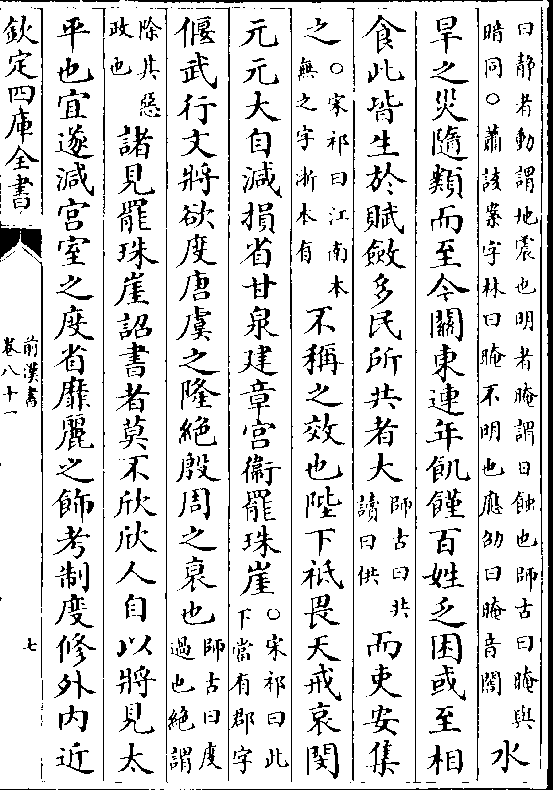 曰静者動謂地震也明者晻謂日蝕也師古曰晻與
暗同○蕭該案字林曰晻不明也應劭曰晻音闇
水
旱之災隨類而至今關東連年飢饉百姓乏困或至相
食此皆生於賦斂多民所共者大
師古曰共
讀曰供
而吏安集
之
○宋祁曰江南本
無之字浙本有
不稱之效也陛下祗畏天戒哀閔
元元大自減損省甘泉建章宮衛罷珠崖
○宋祁曰此
下當有郡字
偃武行文將欲度唐虞之隆絶殷周之衰也
師古曰度
過也絶謂
除其惡
政也
諸見罷珠崖詔書者莫不欣欣人自以將見太
平也宜遂減宮室之度省靡麗之飾考制度修外内近
欽定四庫全書
前漢書
卷八十一
七